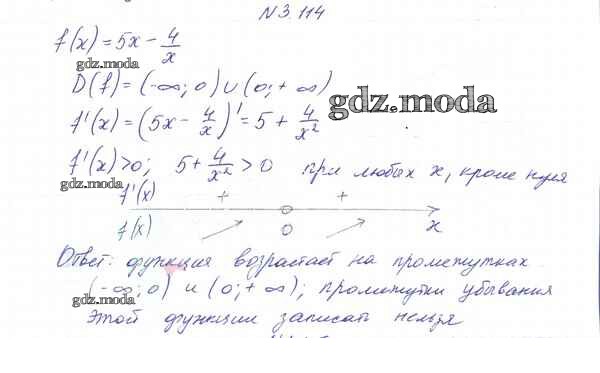 N 3.114
f(x) = 5x - 4/x
gdz.moda
D(f) = (-∞; 0) ∪ (0; +∞)
gdz.moda
f'(x) = (5x - 4/x)' = 5 + 4/x²
f'(x) > 0; 5 + 4/x² > 0 при любых x, кроме нуля
gdz.moda
f'(x) + +
f(x) 0 x
Ответ: функция возрастает на промежутках
(-∞; 0) и (0; +∞); промежутки убывания
gdz.moda
этой функции записать нельзя